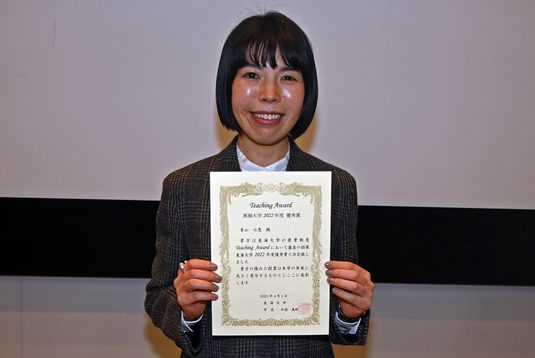 Teaching Award
東海大学 2022 年度 優秀賞
青山 七恵 殿
貴方は東海大学の褒賞制度
Teaching Award において審査の結果
東海大学 2022 年度優秀賞と決定致し
ました
貴方の優れた授業は本学の発展に
大きく寄与するものとしここに表彰
します
2023 年 4 月 1 日
東 海 大 学
学 長